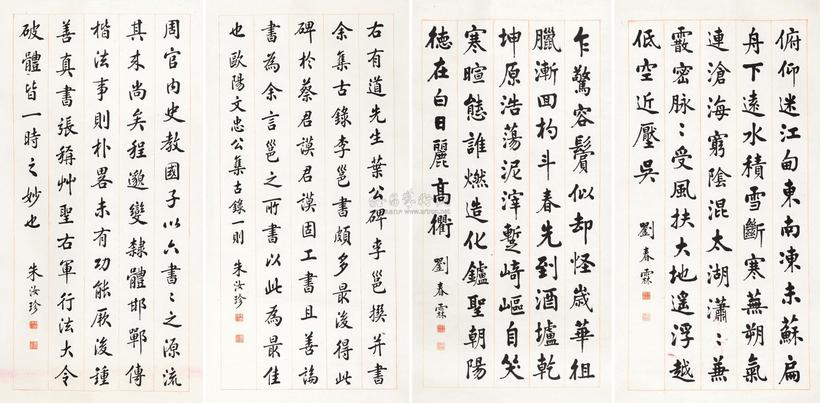 俯仰迷江甸東南凍未蘇扁
舟下遠水積雪斷寒蕪朔氣
連滄海窮陰混太湖瀟〻兼
霰密脉〻受風扶大地遥浮越
低空近壓吳
劉春霖
乍驚容鬢似却怪歲華徂
臘漸回杓斗春先到酒壚乾
坤原浩蕩泥滓蹔崎嶇自笑
寒暄態誰燃造化鑪聖朝陽
德在白日麗高衢
劉春霖
右有道先生葉公碑李邕撰并書
余集古錄李邕書頗多最後得此
碑於蔡君謨君謨固工書且善論
書為余言邕之所書以此為最佳
也歐陽文忠公集古錄一則
朱汝珍
周官內史教國子以六書〻之源流
其来尚矣程邈變隸體邯鄲傳
楷法事則朴畧未有功能厥後鍾
善真書張稱艸聖右軍行法大令
破體皆一時之妙也
朱汝珍